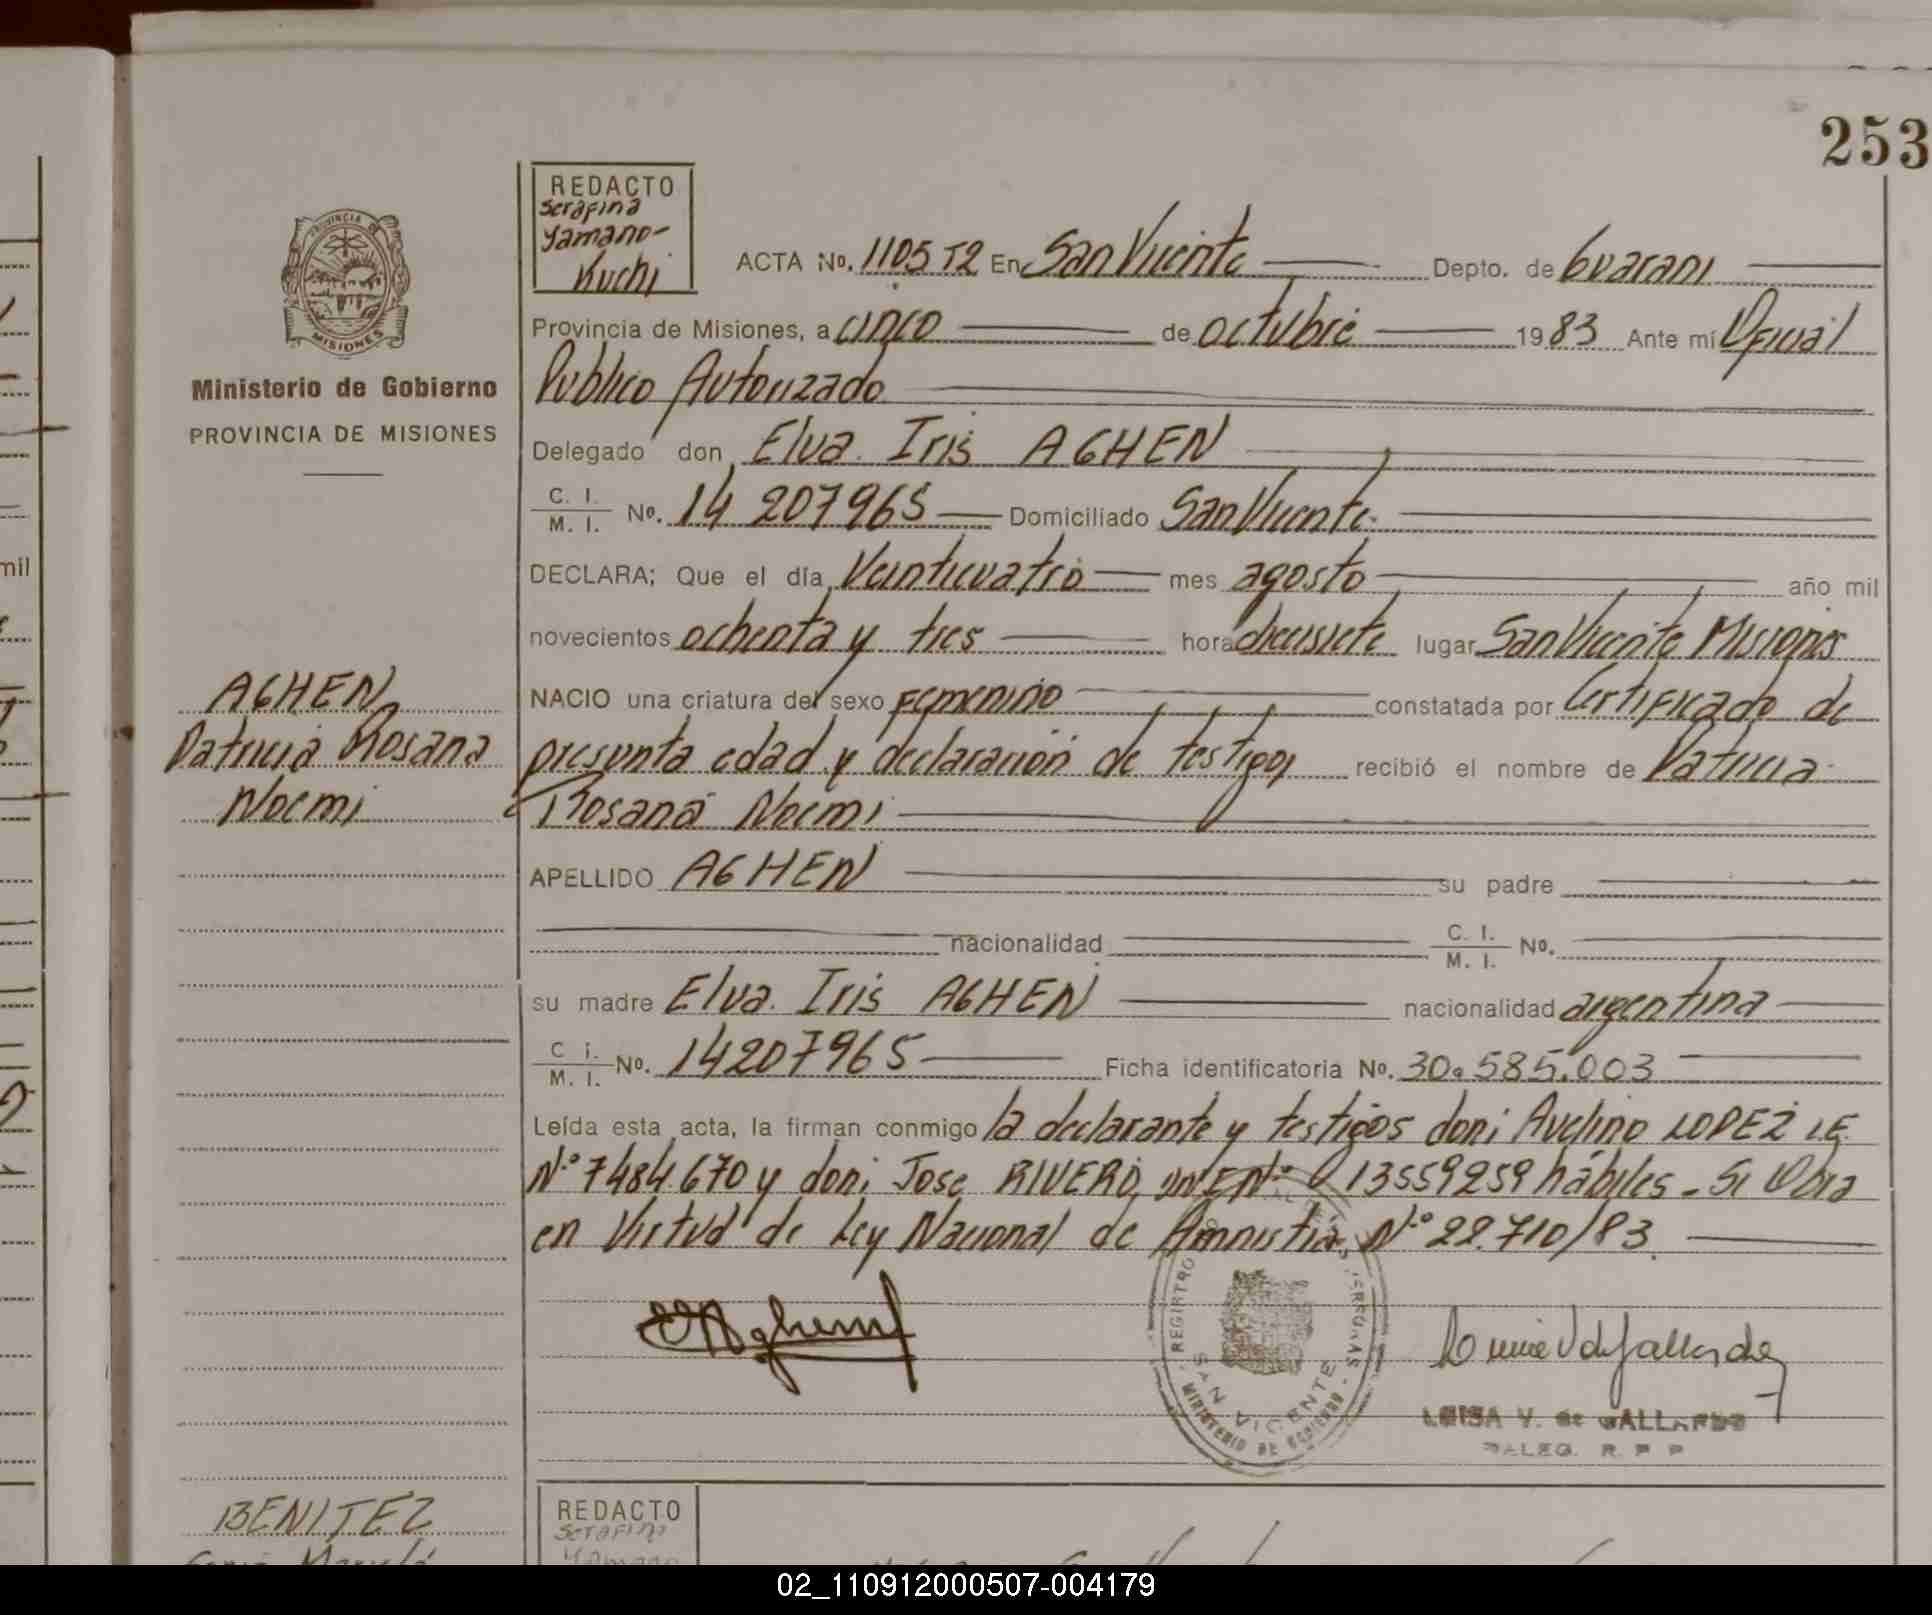 253
REDACTO
Serafina
Yamano-
Kuchi
PROVINCIA
MISIONES
Ministerio de Gobierno
PROVINCIA DE MISIONES
ACTA No. 1105 T2 En San Vicente Depto. de Guarani
Provincia de Misiones, a cinco de octubre 1983 Ante mí Oficial
Publico Autorizado
Delegado don Elva Iris AGHEN
C. I. / M. I. No. 14 207965 Domiciliado San Vicente
DECLARA; Que el día Veinticuatro mes agosto año mil
novecientos ochenta y tres hora diecisiete lugar San Vicente Misiones
NACIO una criatura del sexo Femenino constatada por Certificado de
presunta edad y declaración de testigos recibió el nombre de Patricia
Rosana Noemi
APELLIDO AGHEN su padre
nacionalidad C. I. / M. I. No.
su madre Elva Iris AGHEN nacionalidad argentina
C i. / M. I. No. 14207965 Ficha identificatoria No. 30.585.003
Leída esta acta, la firman conmigo la declarante y testigos don: Avelino LOPEZ L.E.
N° 7484670 y don: Jose RIVERO, DNI N° 13559259 hábiles - Se Obra
en Virtud de Ley Nacional de Amnistia N° 22.710/83.
AGHEN
Patricia Rosana
Noemi
SAN VICENTE
MINISTERIO DE GOBIERNO
LUISA V. de GALLARDO
DALEG. R. P P
BENITEZ
REDACTO
Serafina
Yamano
mil
02_110912000507-004179